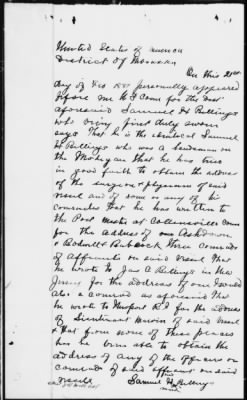 United States of America
District of
On this 21st
day of Feb 188 personally appeared
before me U.S. Com for the Dist
aforesaid Samuel H Billings
who being first duly sworn
says that he is the identical Samuel
H Billings who was a landsman on
the Mohican that he has tried
in good faith to obtain the address
of the surgeon + physicians of said
vessel and of some or any of his
comrades that he has written to
the Post Master at Collinsville Conn
for the address of one
& three Comrades
of Affiants on said vessel that
he wrote to Jas C Billings in New
Jersey for the address of one
also a comrad as aforesaid that
he wrote to Newport R.I for the address
of Lieutenant of said vessel
& that from none of these places
has he been able to obtain the
address of any of the officers or
comrads of said affiant on said
vessel
Samuel H Billings